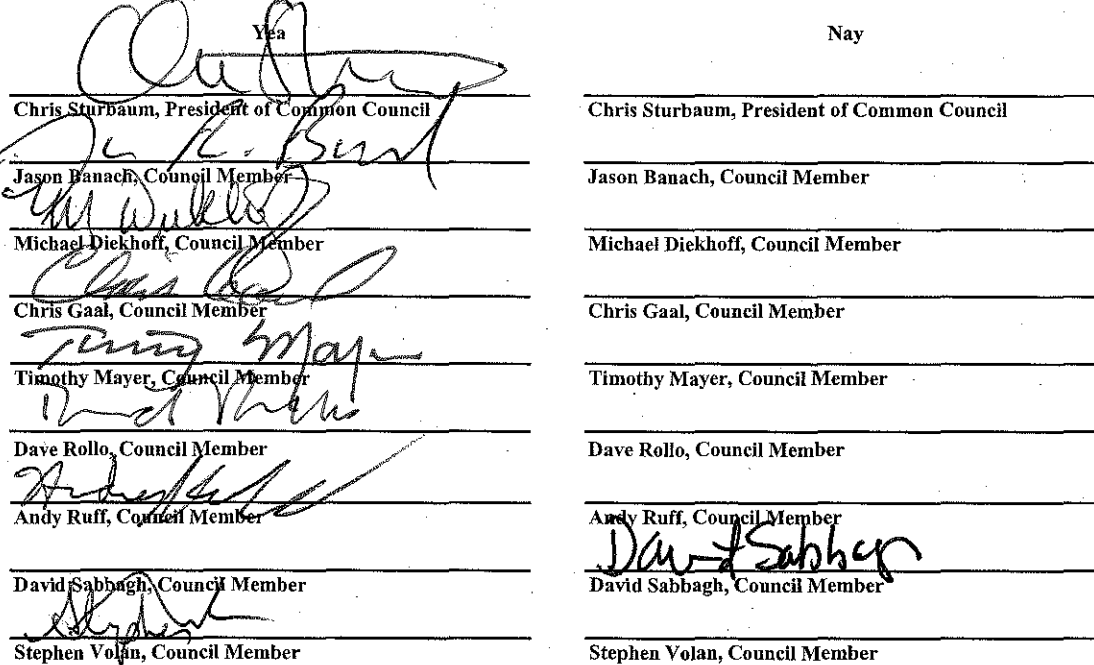 Yea
Chris Sturbaum, President of Common Council
Jason Banach, Council Member
Michael Diekhoff, Council Member
Chris Gaal, Council Member
Timothy Mayer
Timothy Mayer, Council Member
Dave Rollo, Council Member
Andy Ruff, Council Member
David Sabbagh, Council Member
Stephen
Stephen Volan, Council Member
Nay
Chris Sturbaum, President of Common Council
Jason Banach, Council Member
Michael Diekhoff, Council Member
Chris Gaal, Council Member
Timothy Mayer, Council Member
Dave Rollo, Council Member
Andy Ruff, Council Member
David Sabbagh
David Sabbagh, Council Member
Stephen Volan, Council Member